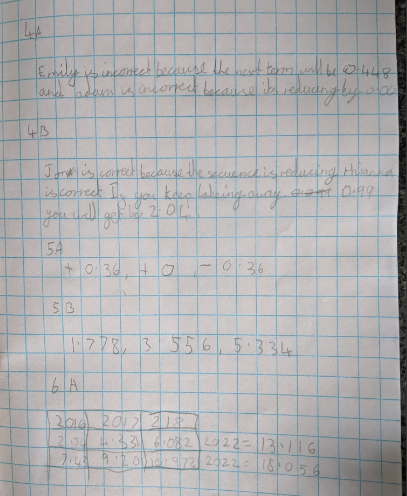 4A
Emily is incorrect because the next term will be 0.448
and adam is incorrect because its reducing by 0.00
4B
is correct because the sequence is reducing
is correct If you keep taking away 0.99
you will get to 2.04
5A
+ 0.36, + 0, - 0.36
5B
1.778, 3.556, 5.334
6A
2016 2017 218
4.33 6.082 2022 = 13.116
9.20 2022 = 18.056